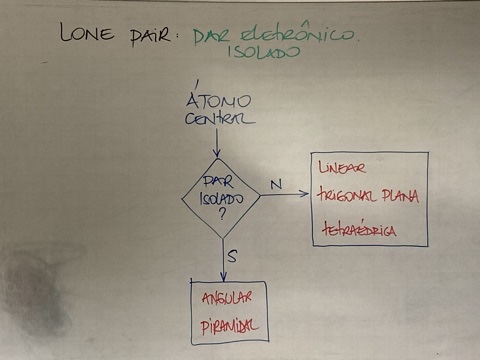 LONE PAIR: PAR ELETRÔNICO.
ISOLADO
ÁTOMO
CENTRAL
PAR
ISOLADO
?
N
LINEAR
TRIGONAL PLANA
TETRAÉDRICA
S
ANGULAR
PIRAMIDAL